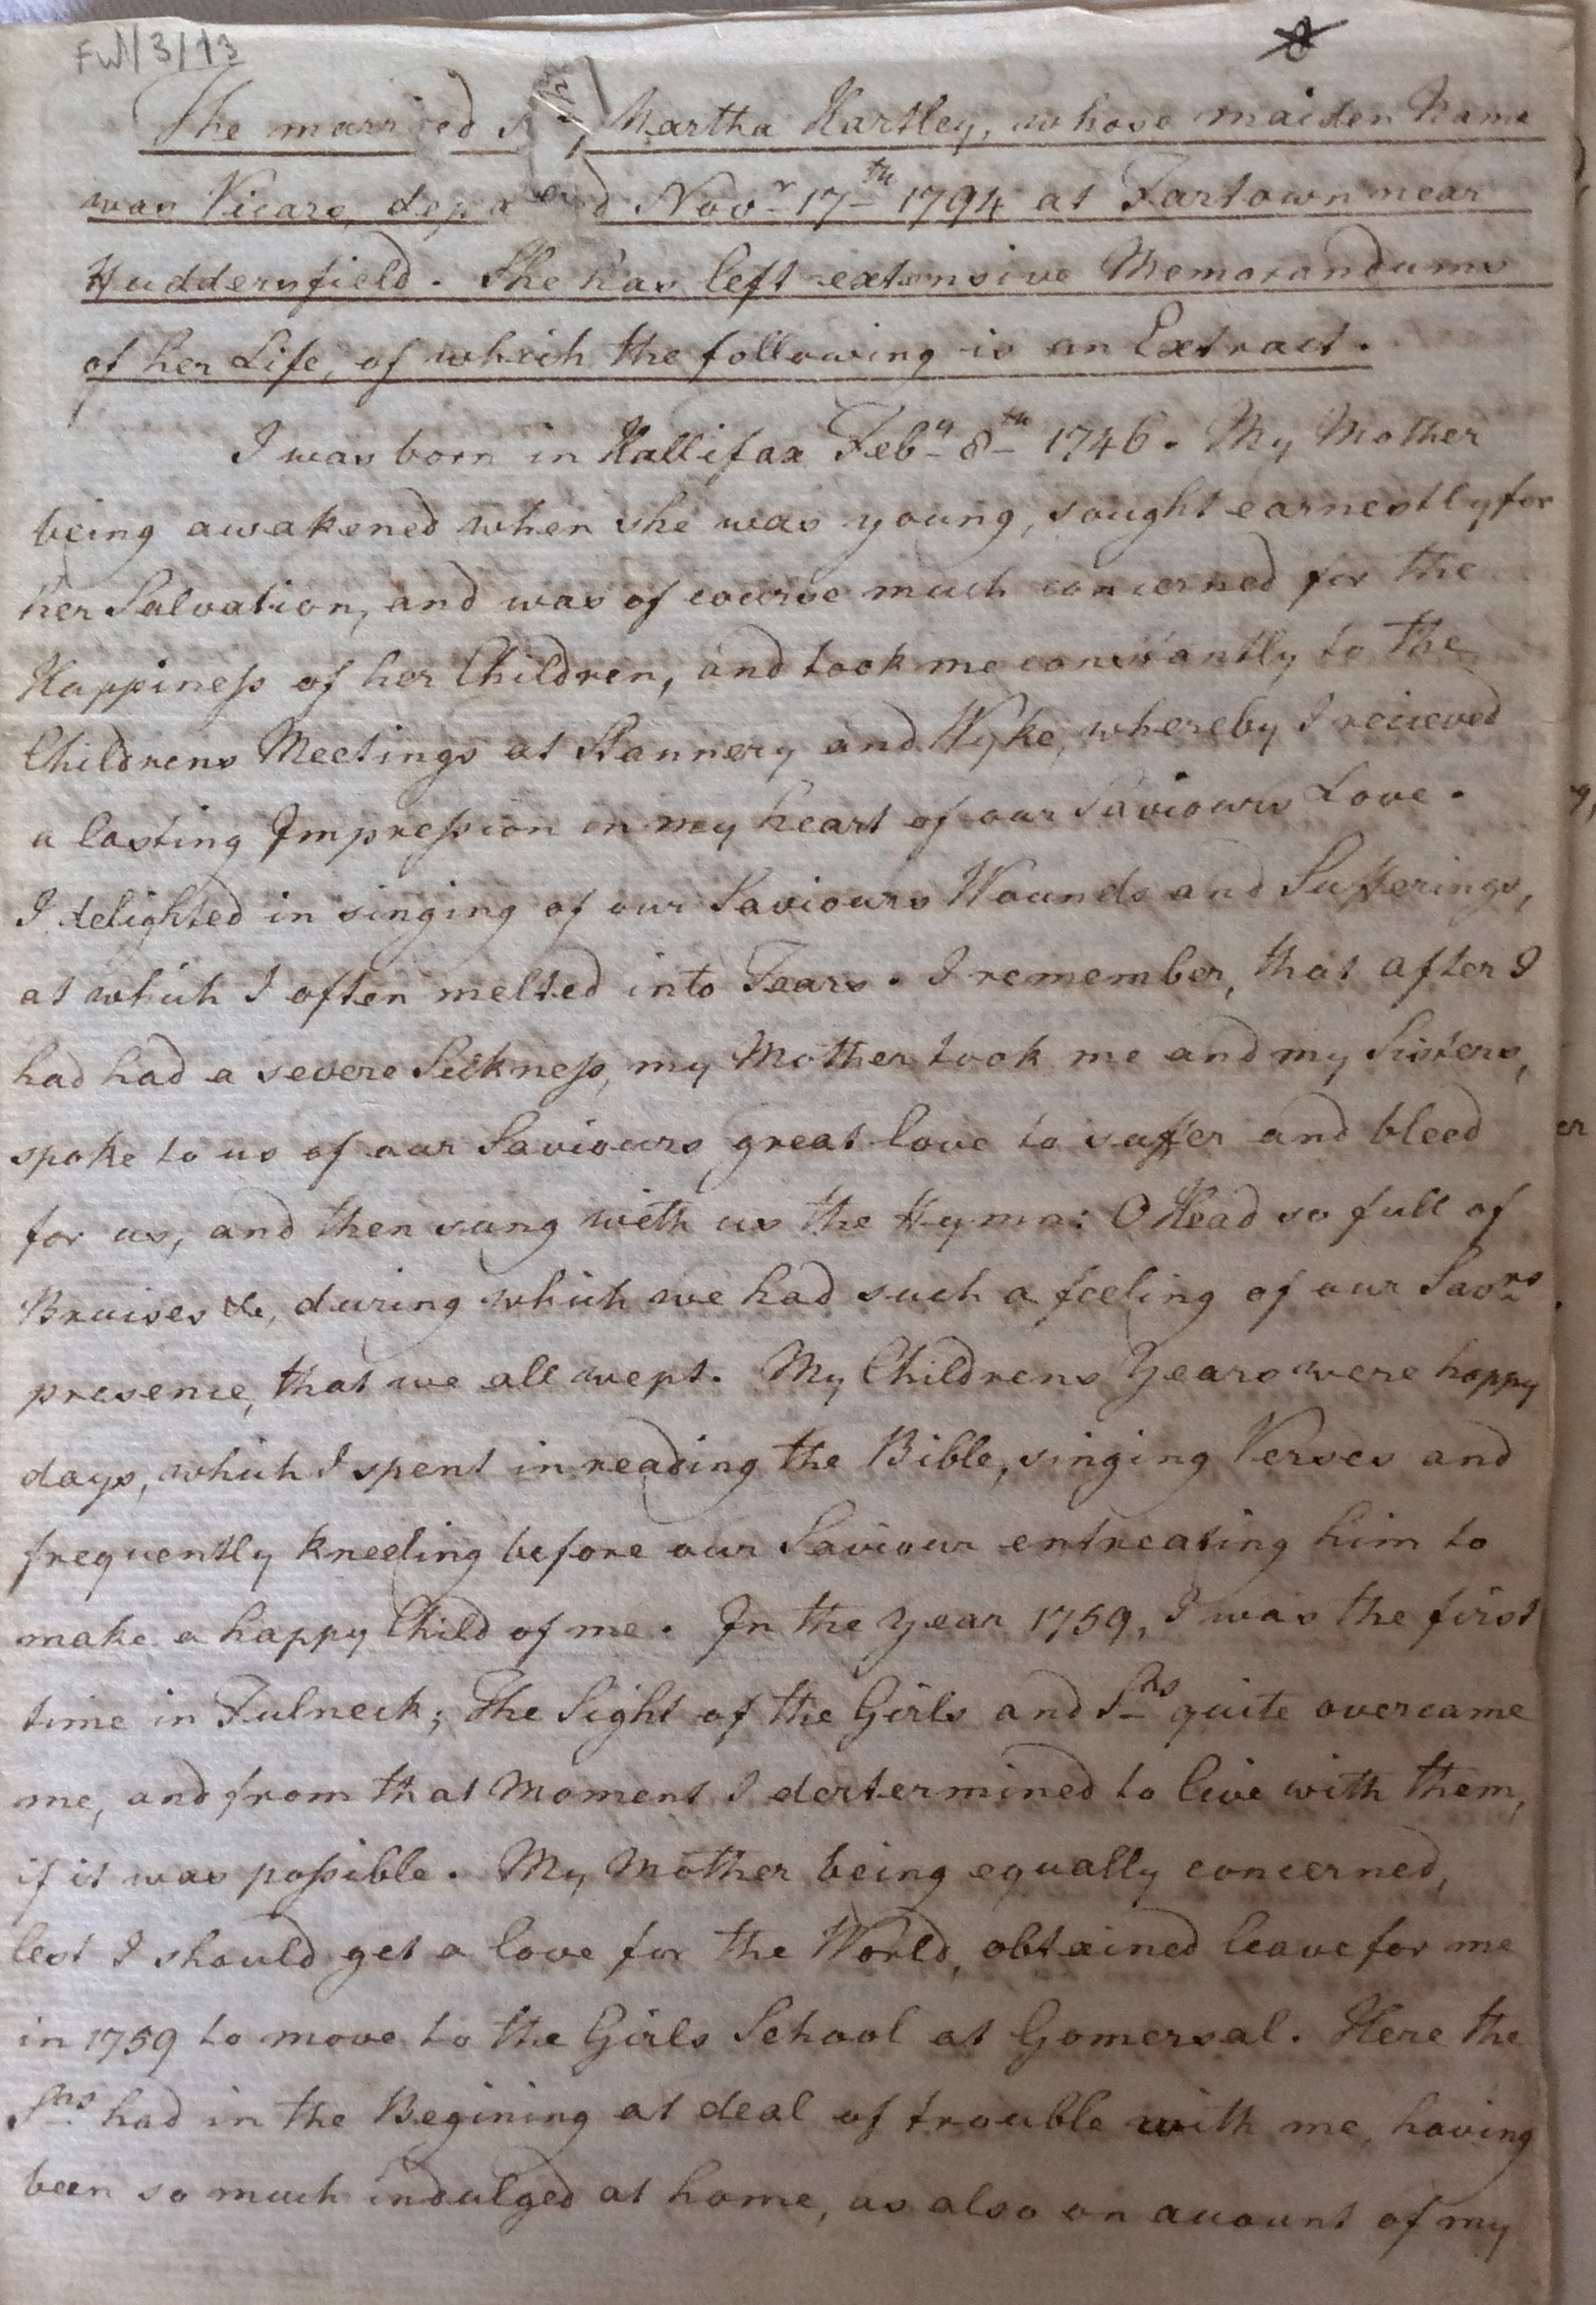 FW/3/13
8
The married Sr Martha Hartley, whose maiden Name
was Vicars, departed Novr 17th 1794 at Fartown near
Huddersfield. She has left extensive Memorandums
of her Life, of which the following is an Extract.
I was born in Hallifax Feby 8th 1746. My Mother
being awakened when she was young, sought earnestly for
her Salvation, and was of course much concerned for the
Happiness of her Children, and took me constantly to the
Childrens Meetings at Stannery and Wyke, whereby I recieved
a lasting Impression on my heart of our Saviours Love.
I delighted in singing of our Saviours Wounds and Sufferings,
at which I often melted into Tears. I remember, that after I
had had a severe Sickness, my Mother took me and my Sisters,
spoke to us of our Saviours great love to suffer and bleed
for us, and then sung with us the Hymn: O Head so full of
Bruises &c, during which we had such a feeling of our Savrs
presence, that we all wept. My Childrens Years were happy
days, which I spent in reading the Bible, singing Verses and
frequently kneeling before our Saviour entreating him to
make a happy Child of me. In the Year 1759, I was the first
time in Fulneck; The Sight of the Girls and Srs quite overcame
me, and from that Moment I dertermined to live with them,
if it was possible. My Mother being equally concerned,
lest I should get a love for the World, obtained leave for me
in 1759 to move to the Girls School at Gomersal. Here the
Srs had in the Begining at deal of trouble with me, having
been so much indulged at home, as also on account of my